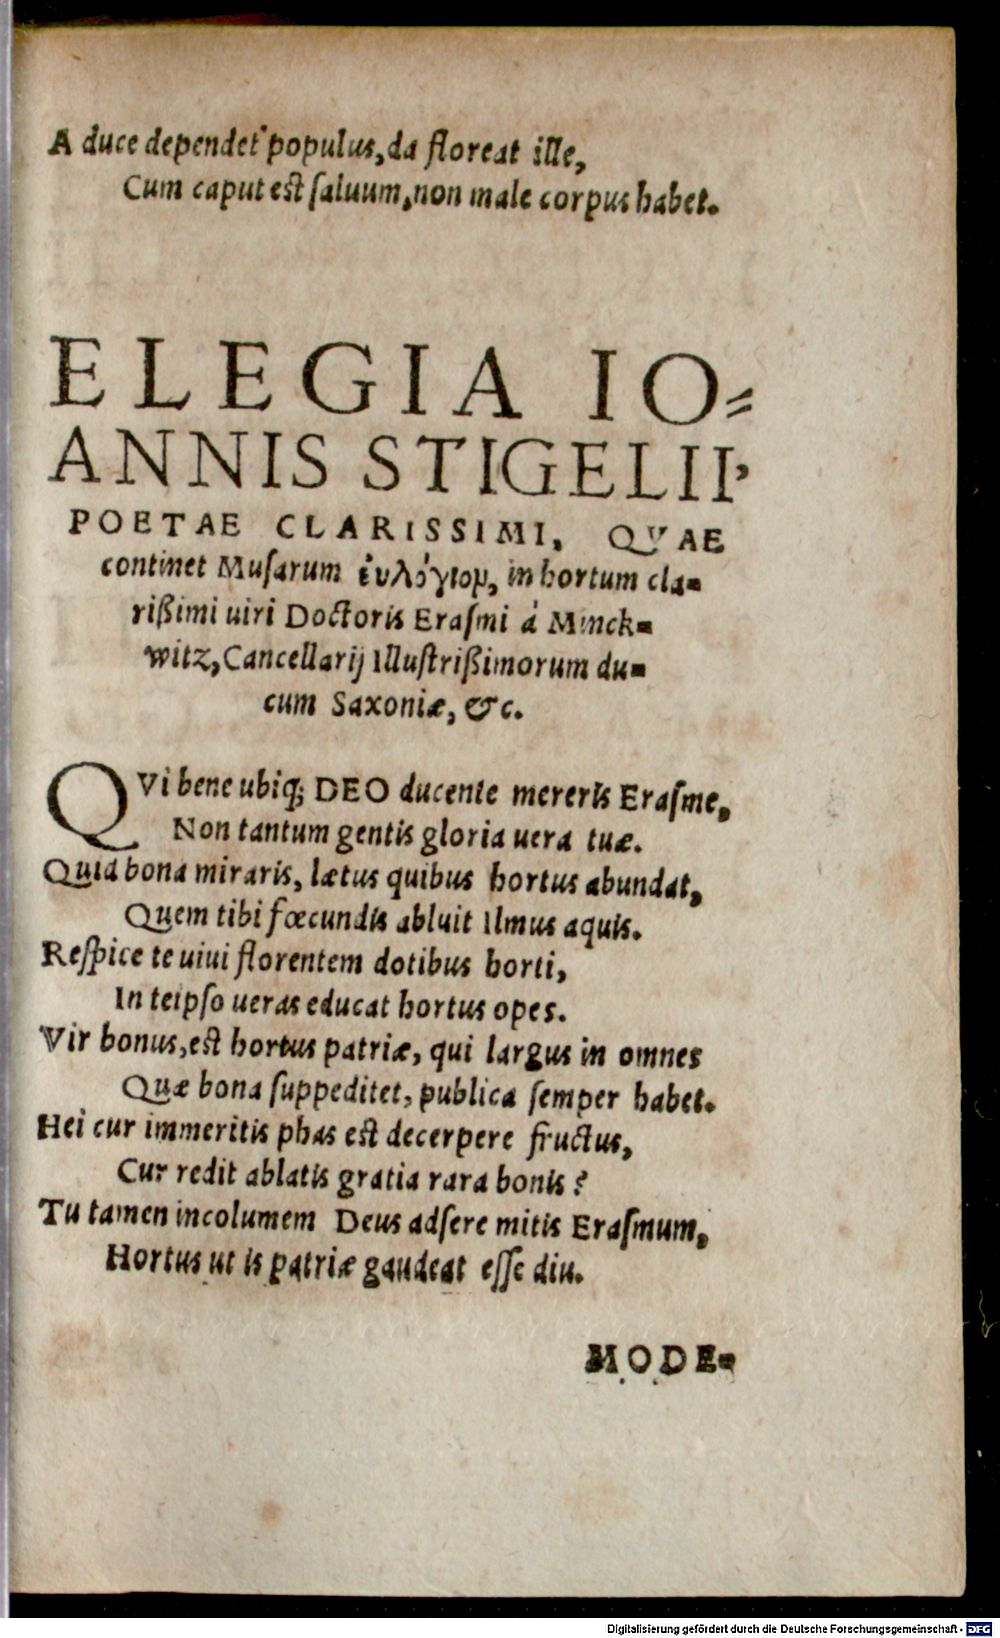 A duce dependet populus, da floreat ille,
Cum caput est ſaluum, non male corpus habet.
ELEGIA IO⸗
ANNIS STIGELII,
POETAE CLARISSIMI, QVAE
continet Muſarum ἐυλόγιομ, in hortum cla⸗
rißimi uiri Doctoris Eraſmi à Minck⸗
witz, Cancellarij Illuſtrißimorum du⸗
cum Saxoniæ, &c.
QVi bene ubiq; DEO ducente mereris Eraſme,
Non tantum gentis gloria uera tuæ.
Quid bona miraris, lætus quibus hortus abundat,
Quem tibi fœcundis abluit Ilmus aquis.
Reſpice te uiui florentem dotibus horti,
In teipſo ueras educat hortus opes.
Vir bonus, est hortus patriæ, qui largus in omnes
Quæ bona ſuppeditet, publica ſemper habet.
Hei cur immeritis phas est decerpere fructus,
Cur redit ablatis gratia rara bonis?
Tu tamen incolumem Deus adſere mitis Eraſmum,
Hortus ut is patriæ gaudeat eſſe diu.
MODE⸗
Digitalisierung gefördert durch die Deutsche Forschungsgemeinschaft - DFG